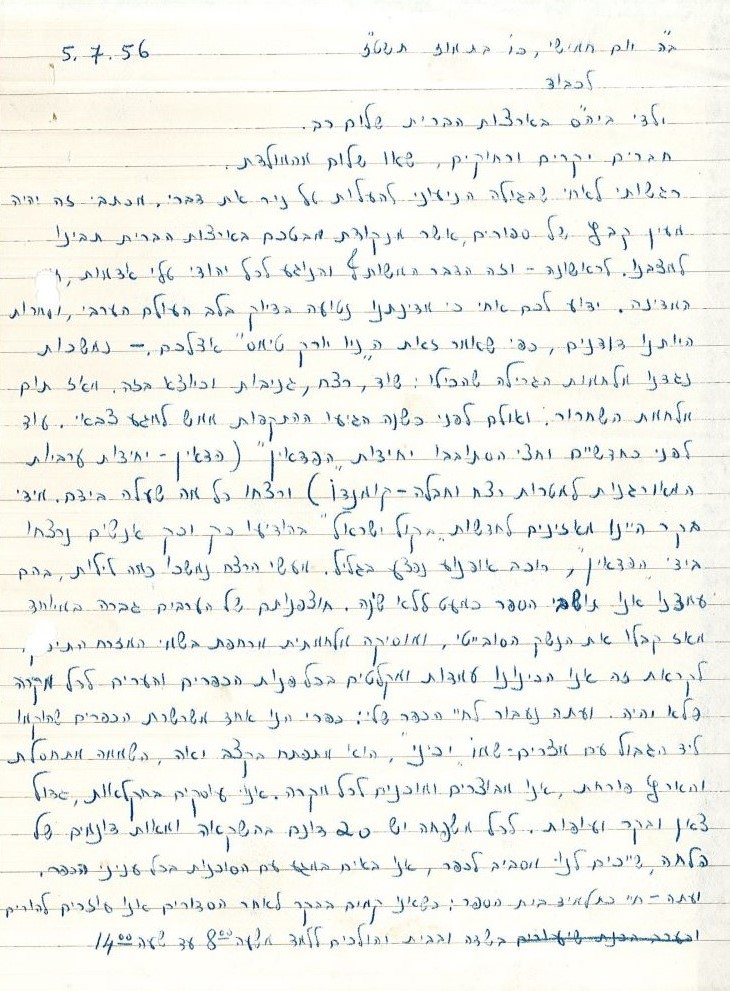 ב"ה יום חמישי, כו' בתמוז תשט"ז 5.7.56
לכבוד
ילדי ביה"ס בארצות הברית שלום רב.
חברים יקרים ורחוקים, שאו שלום מהמולדת.
רגשותי לאחי שבגולה הניעוני להעלות על ניר את דברי. מכתבי זה יהיה
מעין קבץ של ספורים, אשר מנקודת מבטכם בארצות הברית תבינו
למצבנו. לראשונה – וזה הדבר המשותף והנוגע לכל יהודי עלי אדמות,
המדינה. ידוע לכם אחי כי מדינתנו נטועה בדיוק בלב העולם הערבי, ולמרות
היותנו דודנים, כפי שאומר זאת ה"ניו יורק טימס" אצלכם. – נמשכות
נגדנו מלחמות הגרילה שהכילו: שוד, רצח, גניבות וכיוצא בזה. מאז תום
מלחמת השחרור. ואולם לפני כשנה הגיעו ההתקפות ממש למגע צבאי. עוד
לפני כחדשיים וחצי הסתובבו יחידות "הפדאין" (פדאין – יחידות ערביות
המאורגנות למטרות רצח וחבלה – קומנדו) ורצחו כל מה שעלה בידם. מידי
בקר היינו מאזינים לחדשות "בקול ישראל" בהודיעו כך וכך אנשים נרצחו
בידי "הפדאין", רוכב אופנוע נפצע בגליל. מעשי הרצח נמשכו כמה לילות, בהם
עמדנו אנו תושבי הספר כמעט ללא שנה. חוצפנותם של הערבים גברה במיוחד
מאז קבלו את הנשק הסובייטי, ומוסיקה מלחמתית מרחפת בשמי המזרח
לקראת זה אנו הכינונו עמדות ומקלטים בכל פנות הכפרים והערים לכל מקרה
שלא יהיה. ועתה נעבור לחיי הכפר שלי: כפרי הנו אחד משרשרת הכפרים שהוקמו
ליד הגבול עם מצרים – שמו "יכיני", הוא מתפתח בקצב יאה, השממה מתחסלת
והארץ פורחת, אנו מבוצרים ומוכנים לכל מקרה. אנו עוסקים בחקלאות, גדול
צאן ובקר ועופות. לכל משפחה יש 20 דונם בהשקאה ומאות דונמים של
פלחה, שייכים לנו מסביב לכפר, אנו באים במגע עם הסוכנות בכל עניני הכפר.
ועתה – חיי כתלמיד בית הספר: כשאנו קמים בבקר לאחר הסדורים אנו עוזרים להורים
ובערב הכנת שיעורים בשדה ובבית והולכים ללמד משעה 8⁰⁰ עד שעה 14⁰⁰